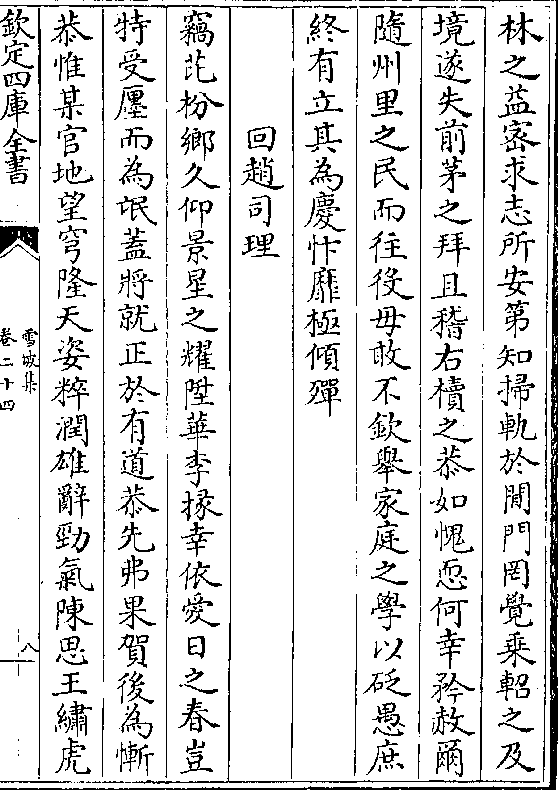 林之益密求志所安第知掃軌於閒門罔覺乗軺之及
境遂失前茅之拜且稽右櫝之恭如愧恧何幸矜赦爾
隨州里之民而往役毋敢不欽舉家庭之學以砭愚庶
終有立其為慶忭靡極傾殫
回趙司理
竊芘枌鄉久仰景星之耀陞華李掾幸依愛日之春豈
特受廛而為氓蓋將就正於有道恭先弗果賀後為慚
恭惟某官地望穹隆天姿粹潤雄辭勁氣陳思王繡虎
欽定四庫全書
雪坡集
卷二十四
八